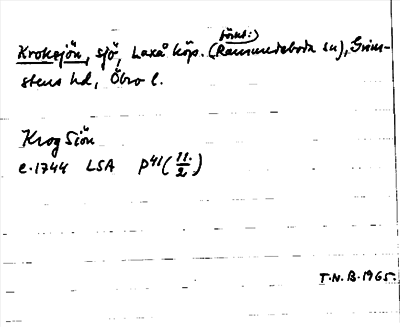 förut:)
Kroksjön, sjö, Laxå köp. (Ramundeboda sn), Grim-
stens hd, Öbro l.
Krog Siön
c. 1744 LSA P41 (11:/2)
T.N.B. 1965.